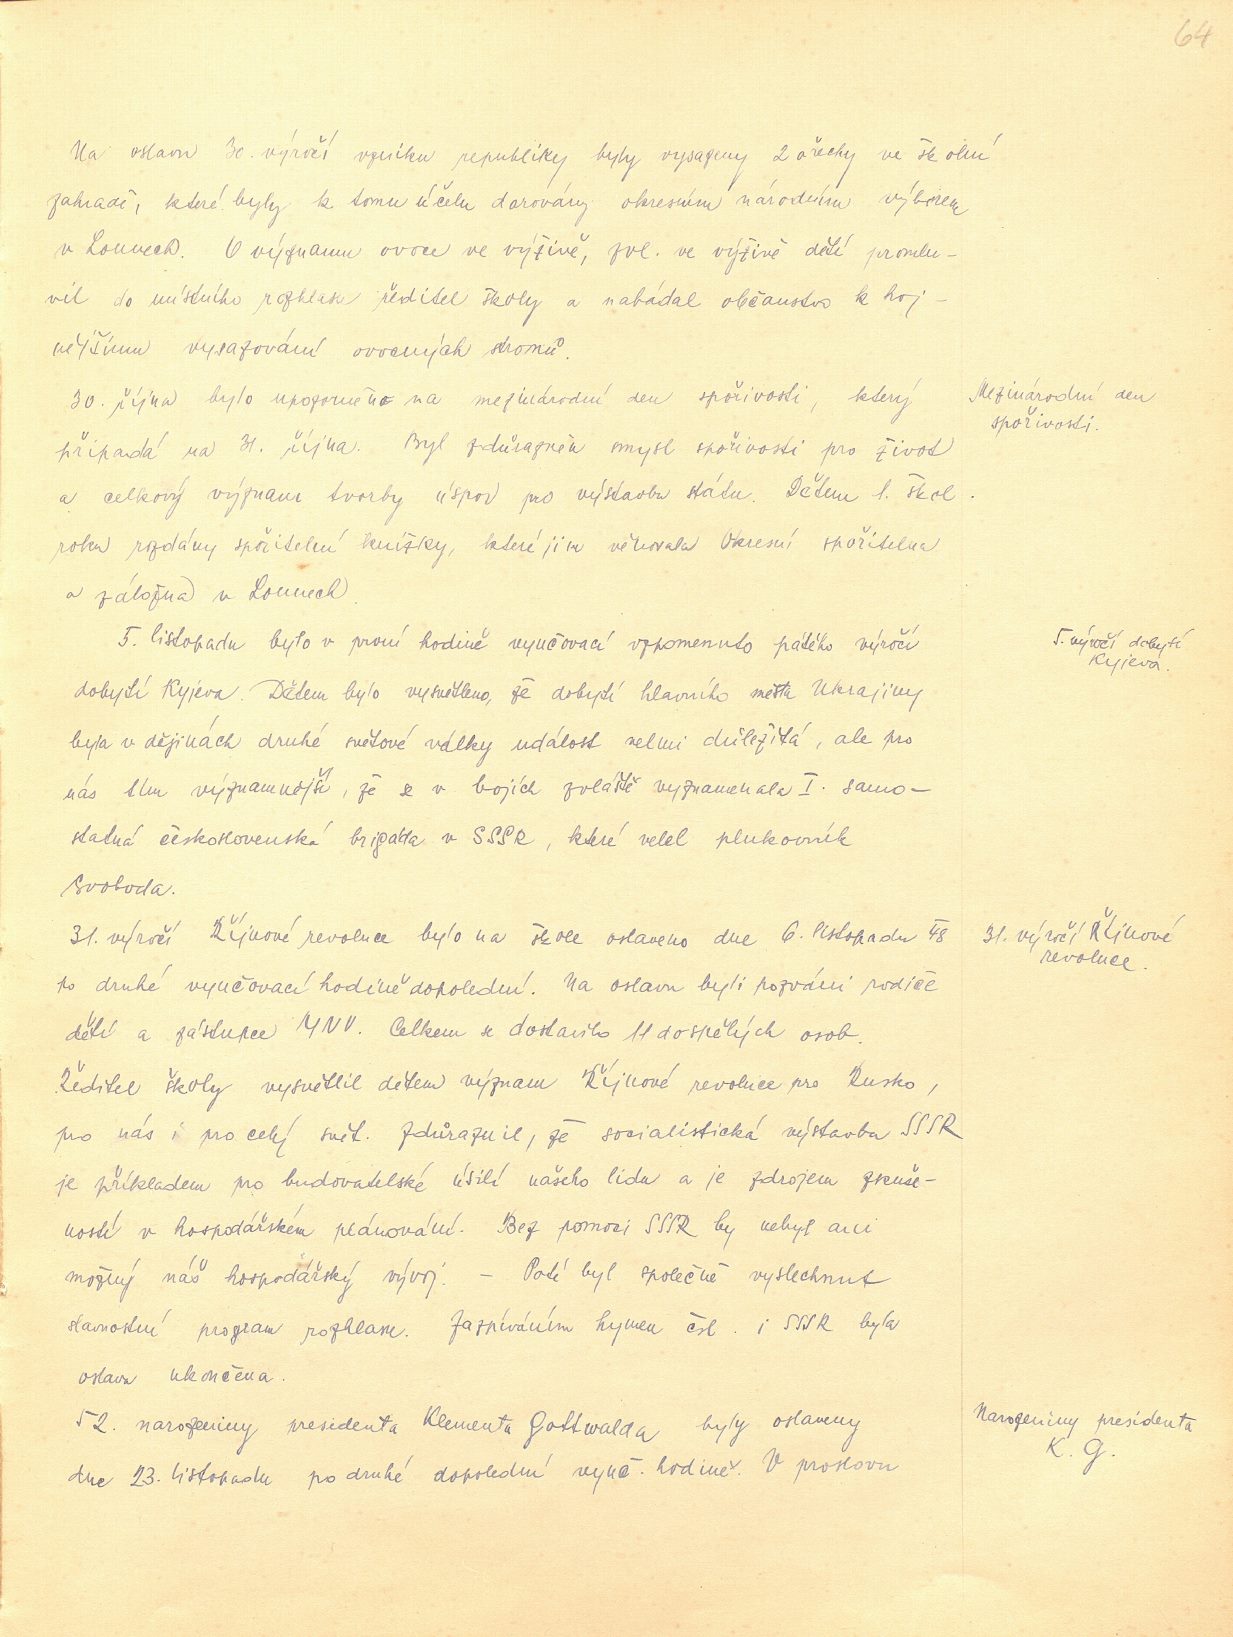 64
Na oslavu 30. výročí vzniku republiky byly vysazeny 2 ořechy ve školní
zahradě, které byly k tomu účelu darovány okresním národním výborem
v Lounech. O významu ovoce ve výživě, zvl. ve výživě dětí promlu-
vil do místního rozhlasu ředitel školy a nabádal občanstvo k hoj-
nějšímu vysazování ovocných stromů.
30. října bylo upozorněno na mezinárodní den spořivosti, který
Mezinárodní den
spořivosti.
připadá na 31. října. Byl zdůrazněn smysl spořivosti pro život
a celkový význam tvorby úspor pro výstavbu státu. Dětem 1. škol.
roku rozdány spořitelní knížky, které jim věnovala Okresní spořitelna
a záložna v Lounech.
5. listopadu bylo v první hodině vyučovací vzpomenuto pátého výročí
5. výročí dobytí
Kyjeva.
dobytí Kyjeva. Dětem bylo vysvětleno, že dobytí hlavního města Ukrajiny
byla v dějinách druhé světové války událost velmi důležitá, ale pro
nás tím významnější, že se v bojích zvláště vyznamenala I. samo-
statná československá brigáda v SSSR, které velel plukovník
Svoboda.
31. výročí Říjnové revoluce bylo na škole oslaveno dne 6. listopadu 48
31. výročí Říjnové
revoluce.
po druhé vyučovací hodině dopolední. Na oslavu byli pozváni rodiče
dětí a zástupce MNV. Celkem se dostavilo 11 dospělých osob.
Ředitel školy vysvětlil dětem význam Říjnové revoluce pro Rusko,
pro nás i pro celý svět. Zdůraznil, že socialistická výstavba SSSR
je příkladem pro budovatelské úsilí našeho lidu a je zdrojem zkuše-
ností v hospodářském plánování. Bez pomoci SSSR by nebyl ani
možný náš hospodářský vývoj. – Poté byl společně vyslechnut
slavnostní program rozhlasu. Zazpíváním hymen čsl. i SSSR byla
oslava ukončena.
52. narozeniny presidenta Klementa Gottwalda byly oslaveny
Narozeniny presidenta
K. G.
dne 23. listopadu po druhé dopolední vyuč. hodině. V proslovu